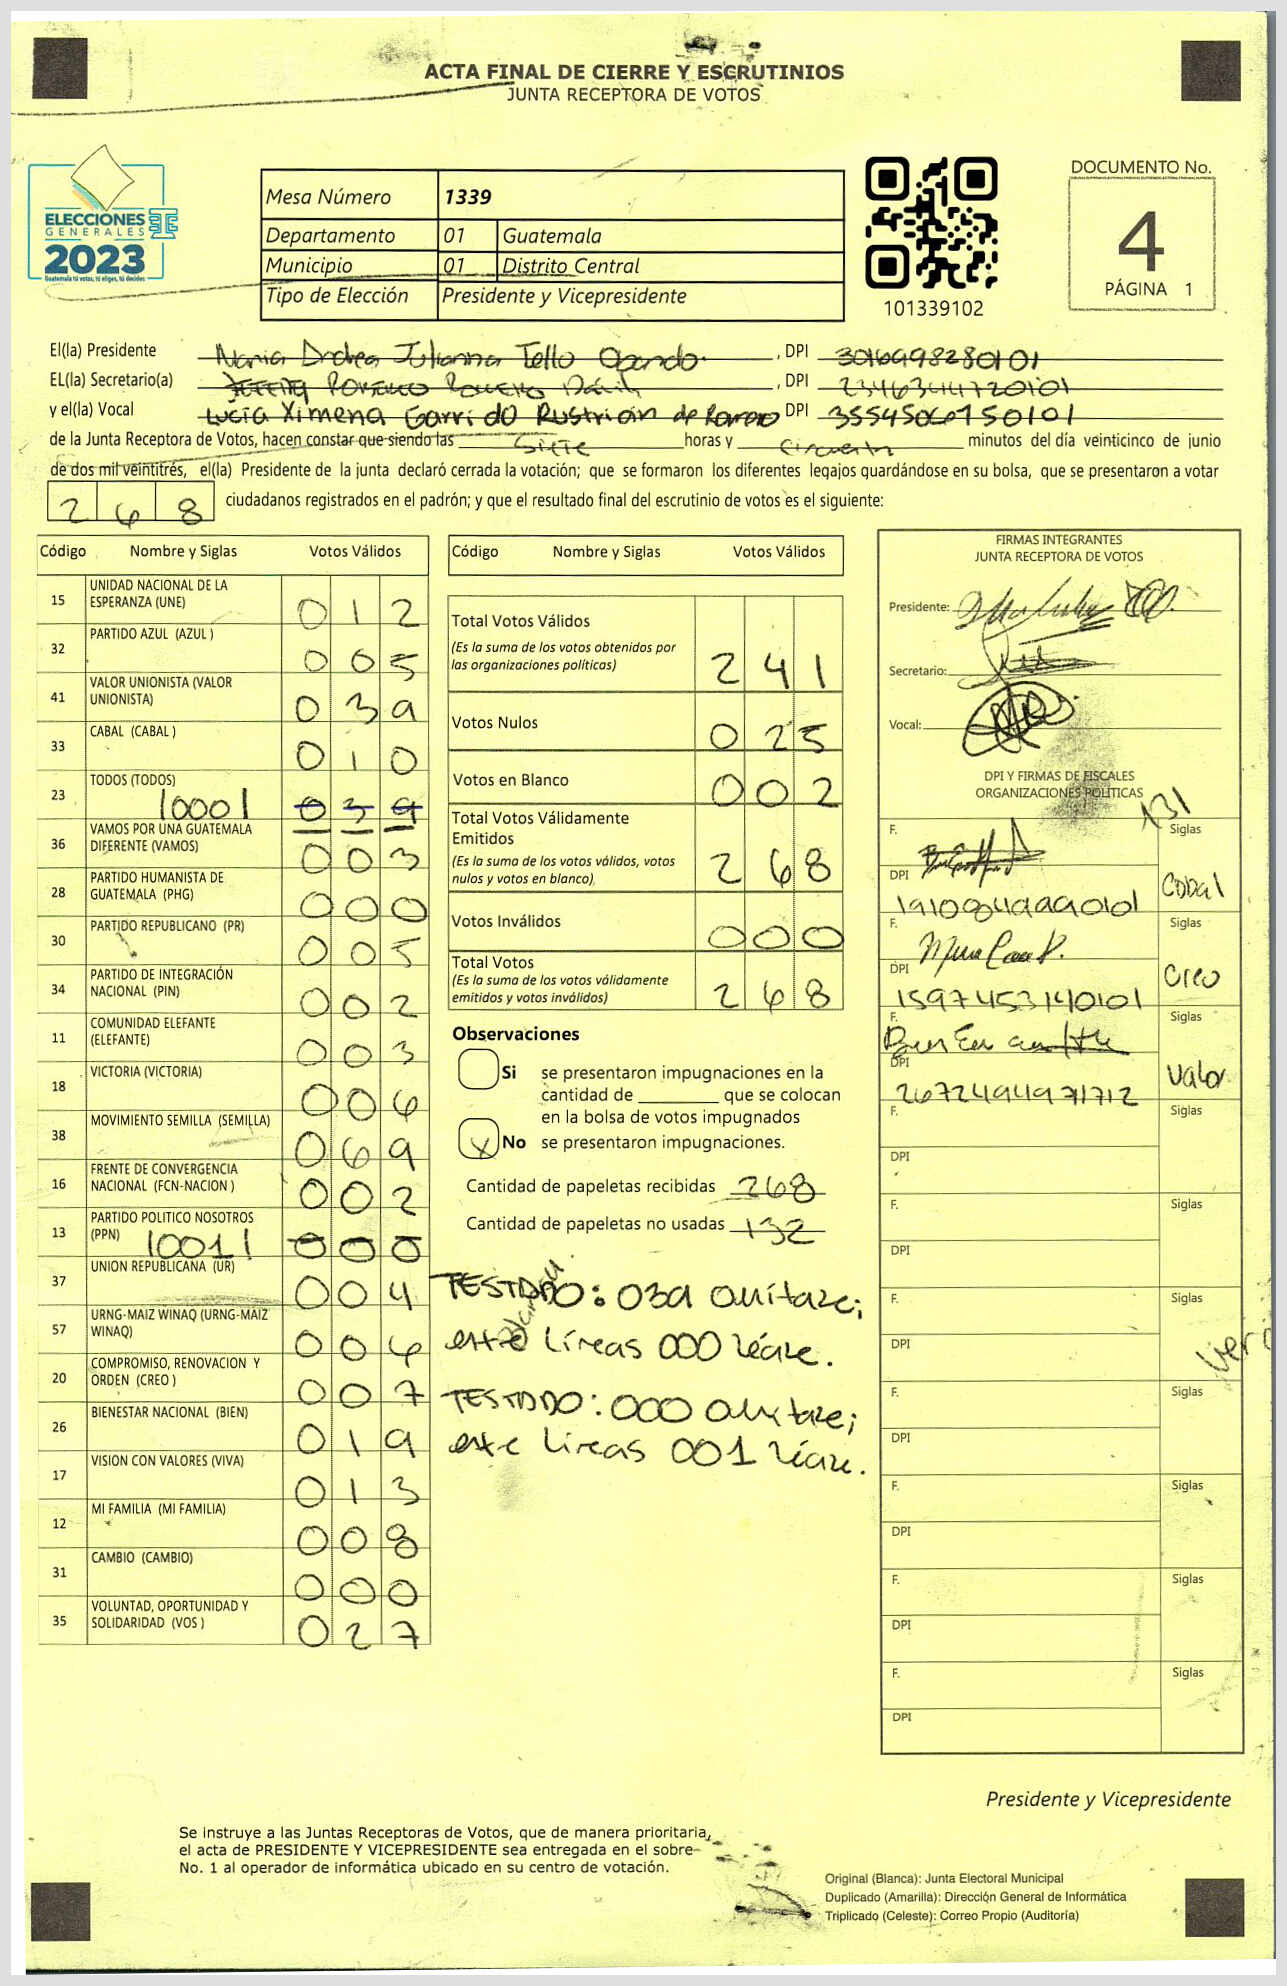 ACTA FINAL DE CIERRE Y ESCRUTINIOS
JUNTA RECEPTORA DE VOTOS
ELECCIONES
GENERALES
2023
Guatemala tú votas, tú eliges, tú decides
Mesa Número 1339
Departamento 01 Guatemala
Municipio 01 Distrito Central
Tipo de Elección Presidente y Vicepresidente
101339102
DOCUMENTO No.
4
PÁGINA 1
El(la) Presidente Maria Andrea Julianna Tello Obando, DPI 3016998280101
EL(la) Secretario(a) , DPI 2346344720101
y el(la) Vocal Lucía Ximena Garrido Rustrián de Romero DPI 3554506750101
de la Junta Receptora de Votos, hacen constar que siendo las Siete horas y Cincuenta minutos del día veinticinco de junio
de dos mil veintitrés, el(la) Presidente de la junta declaró cerrada la votación; que se formaron los diferentes legajos quardándose en su bolsa, que se presentaron a votar
268 ciudadanos registrados en el padrón; y que el resultado final del escrutinio de votos es el siguiente:
Código Nombre y Siglas Votos Válidos
15 UNIDAD NACIONAL DE LA ESPERANZA (UNE) 012
32 PARTIDO AZUL (AZUL ) 005
41 VALOR UNIONISTA (VALOR UNIONISTA) 039
33 CABAL (CABAL ) 010
23 TODOS (TODOS) 10001 039
36 VAMOS POR UNA GUATEMALA DIFERENTE (VAMOS) 003
28 PARTIDO HUMANISTA DE GUATEMALA (PHG) 000
30 PARTIDO REPUBLICANO (PR) 005
34 PARTIDO DE INTEGRACIÓN NACIONAL (PIN) 002
11 COMUNIDAD ELEFANTE (ELEFANTE) 003
18 VICTORIA (VICTORIA) 006
38 MOVIMIENTO SEMILLA (SEMILLA) 069
16 FRENTE DE CONVERGENCIA NACIONAL (FCN-NACION ) 002
13 PARTIDO POLITICO NOSOTROS (PPN) 10011 000
37 UNION REPUBLICANA (UR) 004
57 URNG-MAIZ WINAQ (URNG-MAIZ WINAQ) 006
20 COMPROMISO, RENOVACION Y ORDEN (CREO ) 007
26 BIENESTAR NACIONAL (BIEN) 019
17 VISION CON VALORES (VIVA) 013
12 MI FAMILIA (MI FAMILIA) 008
31 CAMBIO (CAMBIO) 000
35 VOLUNTAD, OPORTUNIDAD Y SOLIDARIDAD (VOS ) 027
Código Nombre y Siglas Votos Válidos
Total Votos Válidos
(Es la suma de los votos obtenidos por
las organizaciones políticas) 241
Votos Nulos 025
Votos en Blanco 002
Total Votos Válidamente
Emitidos
(Es la suma de los votos válidos, votos
nulos y votos en blanco) 268
Votos Inválidos 000
Total Votos
(Es la suma de los votos válidamente
emitidos y votos inválidos) 268
Observaciones
Si se presentaron impugnaciones en la
cantidad de ________ que se colocan
en la bolsa de votos impugnados
X No se presentaron impugnaciones.
Cantidad de papeletas recibidas 268
Cantidad de papeletas no usadas 132
TESTADO: 039 omítase;
entre líneas 000 léase.
TESTADO: 000 omítase;
entre líneas 001 léase.
FIRMAS INTEGRANTES
JUNTA RECEPTORA DE VOTOS
Presidente:
Secretario:
Vocal:
DPI Y FIRMAS DE FISCALES
ORGANIZACIONES POLÍTICAS
131
F. Siglas
DPI 19100849990101 Cabal
F. Siglas
DPI 1597453140101 Creo
F. Siglas
DPI 2672494971712 Valor
F. Siglas
DPI
F. Siglas
DPI
F. Siglas
DPI
F. Siglas
DPI
F. Siglas
DPI
F. Siglas
DPI
F. Siglas
DPI
Presidente y Vicepresidente
Se instruye a las Juntas Receptoras de Votos, que de manera prioritaria,
el acta de PRESIDENTE Y VICEPRESIDENTE sea entregada en el sobre
No. 1 al operador de informática ubicado en su centro de votación.
Original (Blanca): Junta Electoral Municipal
Duplicado (Amarilla): Dirección General de Informática
Triplicado (Celeste): Correo Propio (Auditoría)